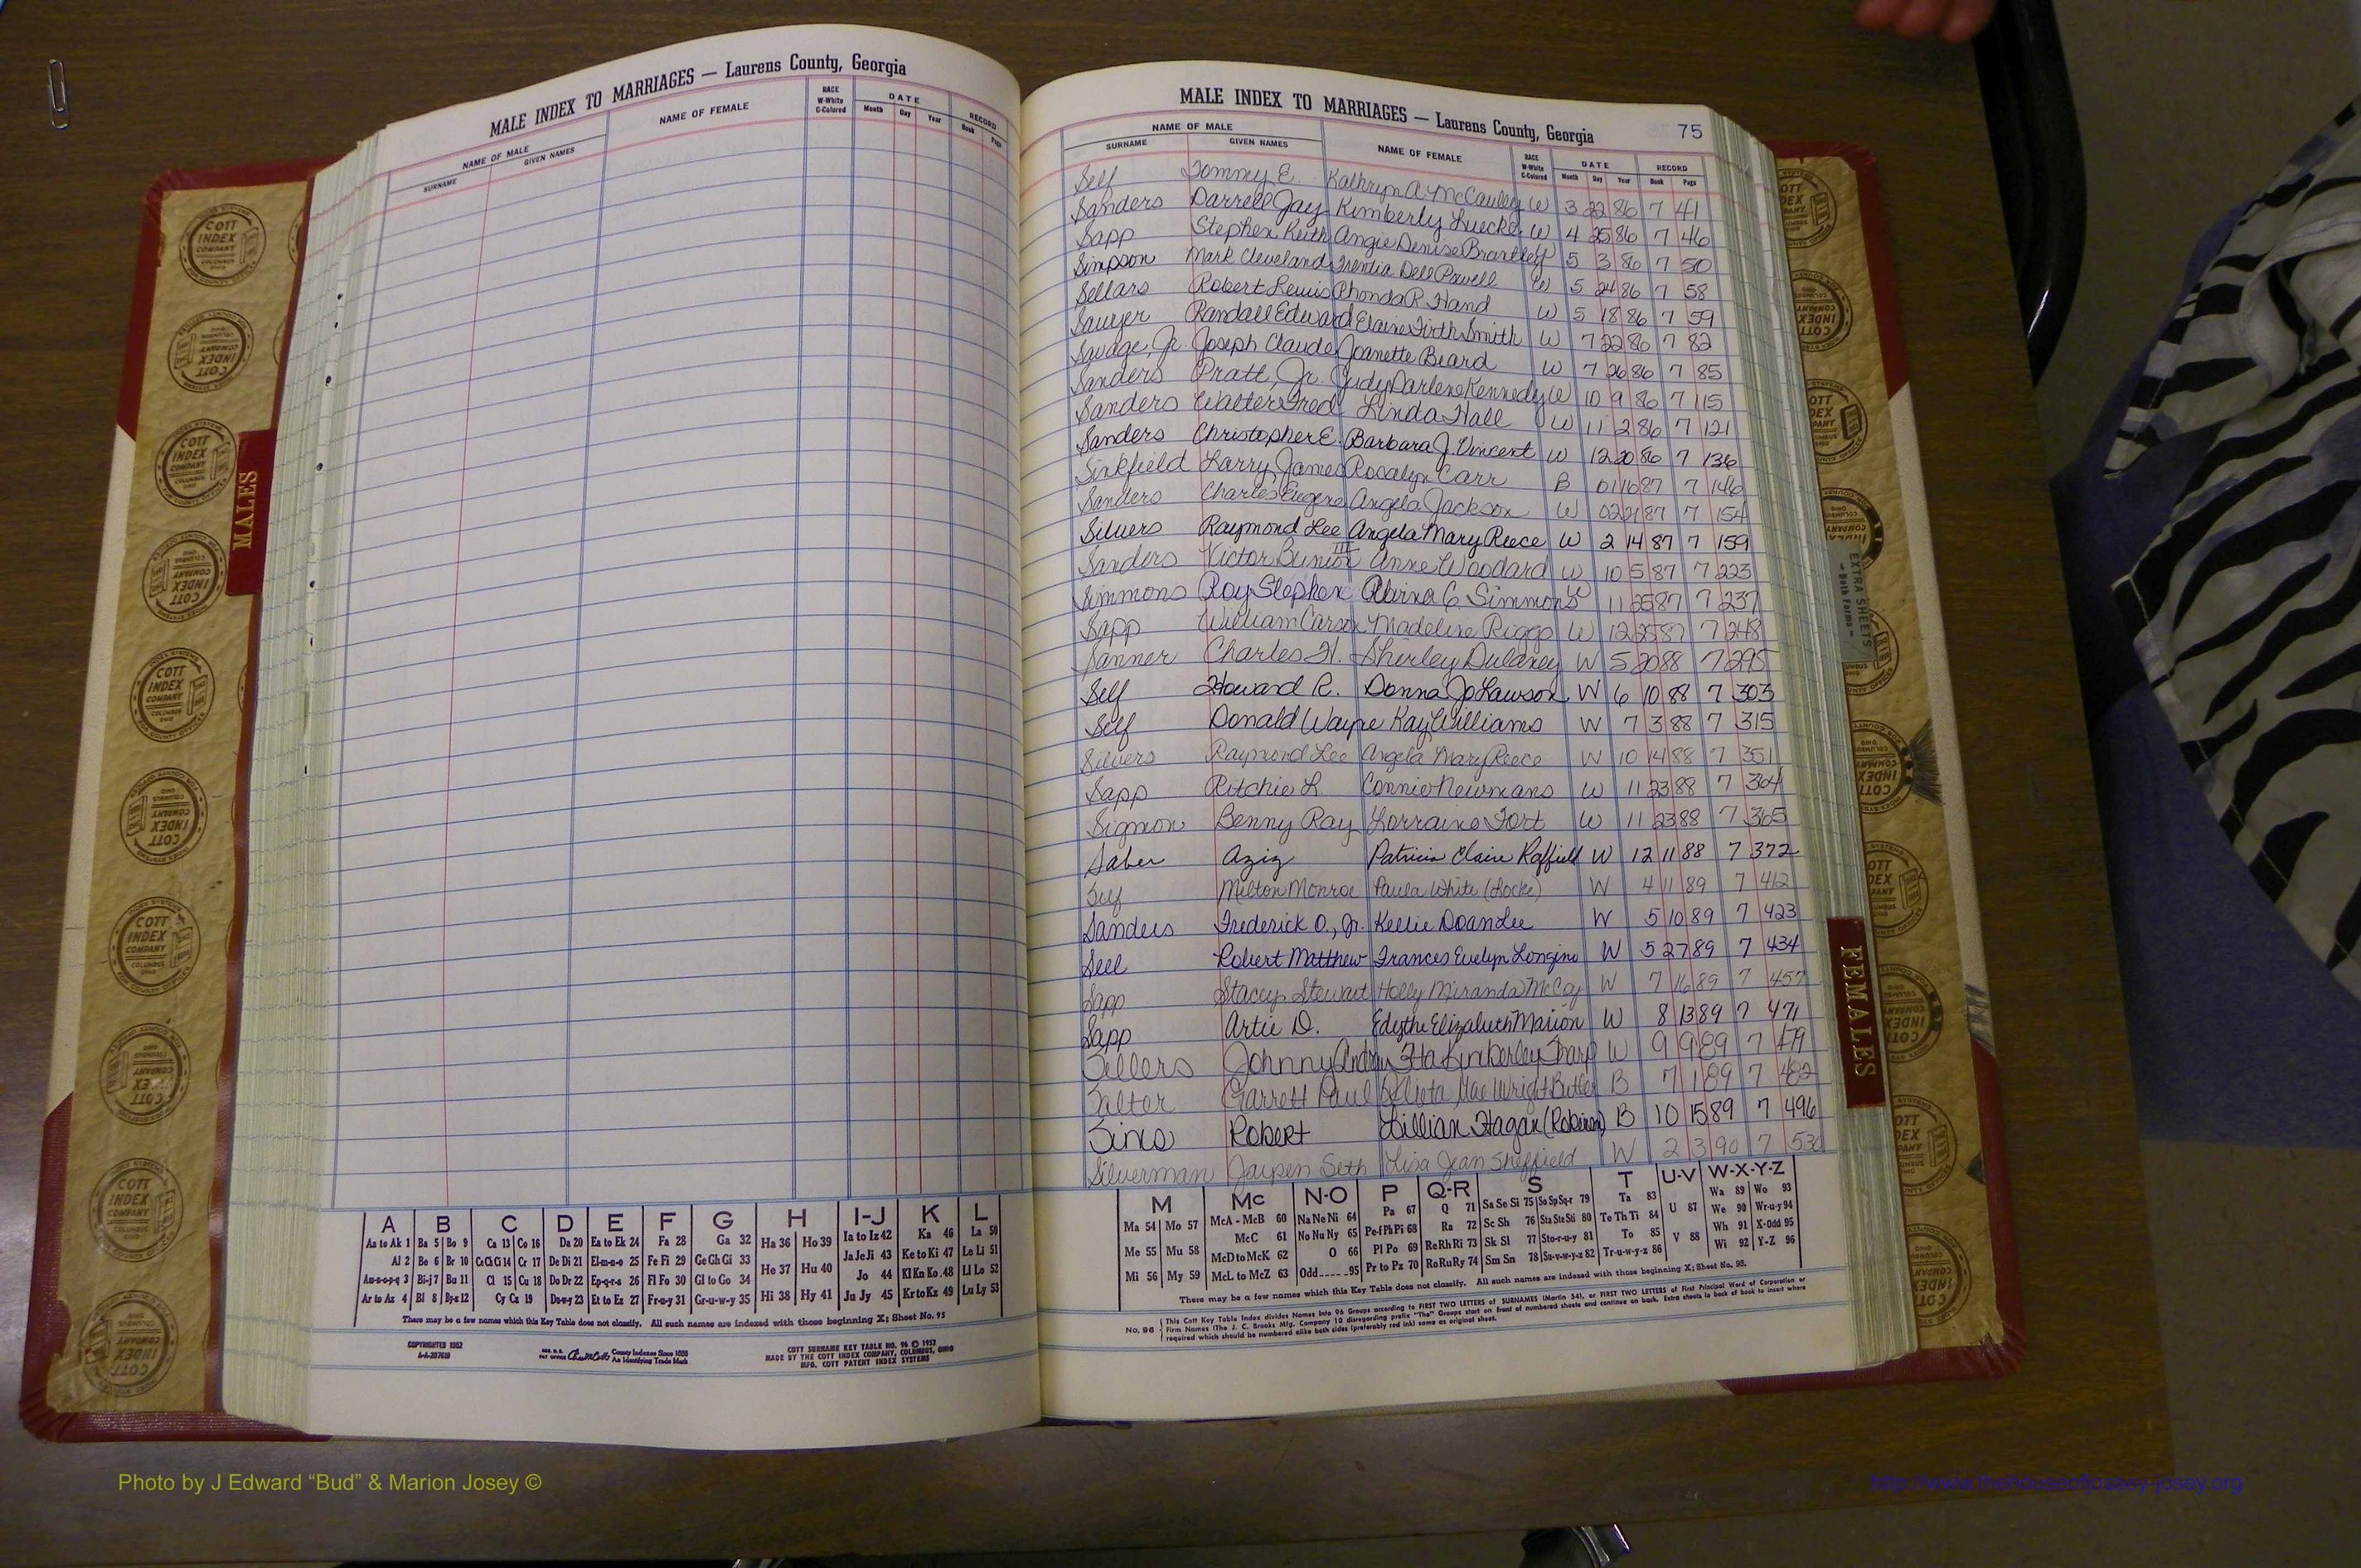 MALE INDEX TO MARRIAGES — Laurens County, Georgia
NAME OF MALE
SURNAME GIVEN NAMES NAME OF FEMALE RACE W-White C-Colored DATE Month Day Year RECORD Book Page
A B C D E F G H I-J K L
Aa to Ak 1 Ba 5 Bo 9 Ca 13 Co 16 Da 20 Ea to Ek 24 Fa 28 Ga 32 Ha 36 Ho 39 Ia to Iz 42 Ka 46 La 50
Al 2 Be 6 Br 10 Ce Ch Ci 14 Cr 17 De Di 21 El-m-n-o 25 Fe Fi 29 Ge Gh Gi 33 He 37 Hu 40 Ja Je Ji 43 Ke to Ki 47 Le Li 51
Am-n-o-p-q 3 Bi-j 7 Bu 11 Cl 15 Cu 18 Do Dr 22 Ep-q-r-s 26 Fl Fo 30 Gl to Go 34 Jo 44 Kl Kn Ko 48 Ll Lo 52
Ar to Az 4 Bl 8 By-z 12 Cy Cz 19 Du-w-y 23 Et to Ez 27 Fr-u-y 31 Gr-u-w-y 35 Hi 38 Hy 41 Ju Jy 45 Kr to Kz 49 Lu Ly 53
There may be a few names which this Key Table does not classify. All such names are indexed with those beginning X; Sheet No. 95
COPYRIGHTED 1952
A-A-207619
County Indexes Since 1888
An Identifying Trade Mark
COTT SURNAME KEY TABLE NO. 96 © 1952
MADE BY THE COTT INDEX COMPANY, COLUMBUS, OHIO
MFG. COTT PATENT INDEX SYSTEMS
MALE INDEX TO MARRIAGES — Laurens County, Georgia 75
NAME OF MALE
SURNAME GIVEN NAMES NAME OF FEMALE RACE W-White C-Colored DATE Month Day Year RECORD Book Page
Self Tommy E. Kathryn A. McCauley W 3 22 86 7 41
Sanders Darrell Jay Kimberly Luecke W 4 25 86 7 46
Sapp Stephen Keith Angie Denise Brantley W 5 3 86 7 50
Simpson Mark Cleveland Dell Powell W 5 24 86 7 58
Sellars Robert Lewis Rhonda R. Hand W 5 18 86 7 59
Sawyer Randall Edward Elaine Firth Smith W 7 22 86 7 82
Savage, Jr. Joseph Claude Joanette Beard W 7 26 86 7 85
Sanders Pratt, Jr. Judy Darlene Kennedy W 10 9 86 7 115
Sanders Walter Fred Linda Hall W 11 2 86 7 121
Sanders Christopher E. Barbara J. Vincent W 12 20 86 7 136
Sinkfield Larry James Rosalyn Carr B 01 16 87 7 146
Sanders Charles Eugene Angela Jackson W 02 21 87 7 154
Silvers Raymond Lee Angela Mary Reece W 2 14 87 7 159
Sanders Victor Bunion III Anne Woodard W 10 5 87 7 223
Simmons Roy Stephen Alvina C. Simmons W 11 25 87 7 237
Sapp William Carson Madeline Riggs W 12 25 87 7 248
Sanner Charles H. Shirley Dulaney W 5 20 88 7 295
Self Howard R. Donna Jo Lawson W 6 10 88 7 303
Self Donald Wayne Kay Williams W 7 3 88 7 315
Silvers Raymond Lee Angela Mary Reece W 10 14 88 7 351
Sapp Ritchie L. Connie Newmans W 11 23 88 7 364
Sigmon Benny Ray Lorraine Fort W 11 23 88 7 365
Saber Aziz Patricia Elaine Raffield W 12 11 88 7 372
Self Milton Monroe Paula White (Locke) W 4 11 89 7 412
Sanders Frederick O., Jr. Kellie Doan Lee W 5 10 89 7 423
Seel Robert Matthew Frances Evelyn Longino W 5 27 89 7 434
Sapp Stacey Stewart Holly Miranda McCoy W 7 16 89 7 457
Sapp Artie D. Edythe Elizabeth Marion W 8 13 89 7 471
Sellers Johnny Andrew Kimberley Tharp W 9 9 89 7 479
Salter Garrett Paul Mae Wright Butler B 7 1 89 7 482
Sims Robert Lillian Hagan (Robinson) B 10 15 89 7 496
Silverman Jaysen Seth Lisa Jean Sheffield W 2 3 90 7 530
M Mc N-O P Q-R S T U-V W-X-Y-Z
Ma 54 Mo 57 McA - McB 60 Na Ne Ni 64 Pa 67 Q 71 Sa Se Si 75 So Sp Sq-r 79 Ta 83 U 87 Wa 89 Wo 93
Me 55 Mu 58 McC 61 No Nu Ny 65 Pe-f Ph Pi 68 Ra 72 Sc Sh 76 Sta Ste Sti 80 Te Th Ti 84 We 90 Wr-u-y 94
McD to McK 62 O 66 Pl Po 69 Re Rh Ri 73 Sk Sl 77 Sto-r-u-y 81 To 85 V 88 Wh 91 X-Odd 95
Mi 56 My 59 McL to McZ 63 Odd 95 Pr to Pz 70 Ro Ru Ry 74 Sm Sn 78 Su-v-w-y-z 82 Tr-u-w-y-z 86 Wi 92 Y-Z 96
There may be a few names which this Key Table does not classify. All such names are indexed with those beginning X; Sheet No. 95.
No. 96 This Cott Key Table Index divides Names into 96 Groups according to FIRST TWO LETTERS of SURNAMES (Martin 54), or FIRST TWO LETTERS of First Principal Word of Corporation or
Firm Names (The J. C. Brooks Mfg. Company 10 disregarding prefix "The" Groups start on front of numbered sheets and continue on back. Extra sheets in back of book to insert where
required which should be numbered alike both sides (preferably red ink) same as original sheet.
MALES
FEMALES
EXTRA SHEETS
— Both Forms —
COTT INDEX COMPANY COLUMBUS OHIO
Photo by J Edward “Bud” & Marion Josey ©
http://www.thehouseofjossey-josey.org